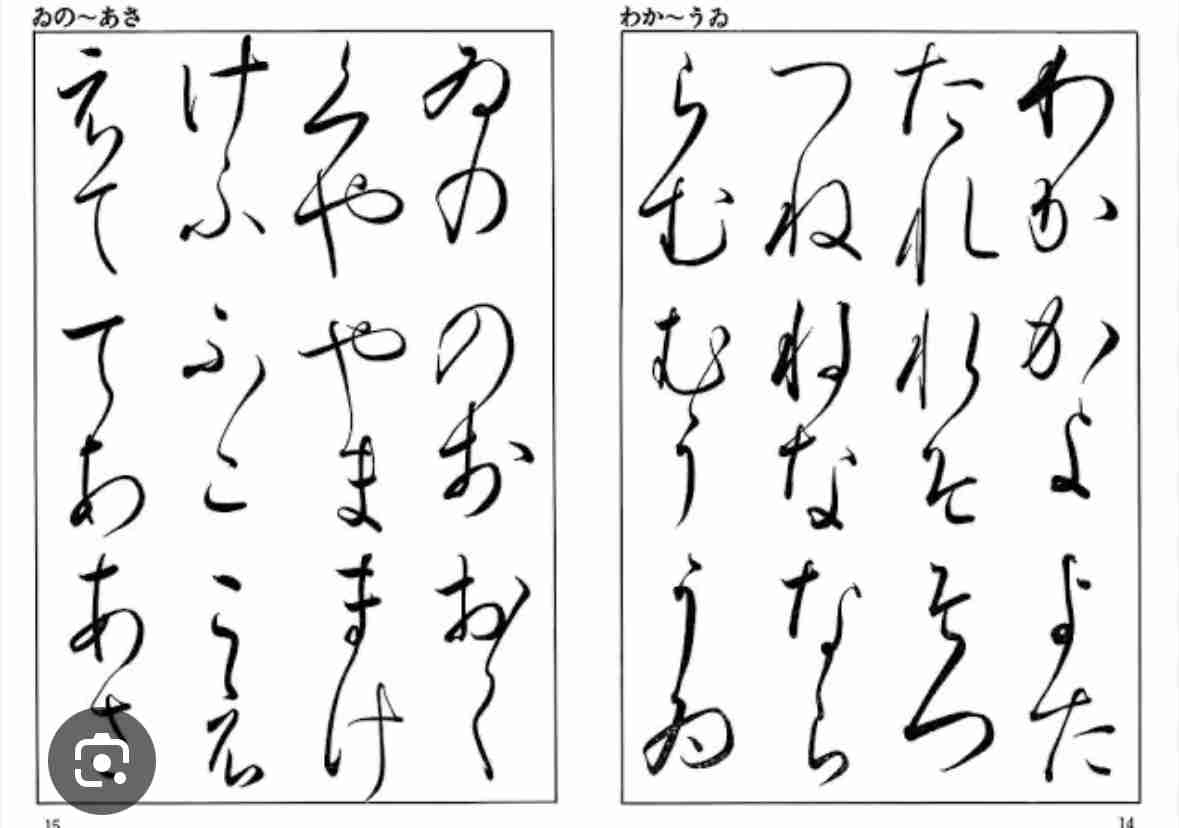 わか〜うゐ
わかかよよた
たれれそそつ
つねねななら
らむむううゐ
14
ゐの〜あさ
ゐののおおく
くややままけ
けふふここえ
えててああさ
15